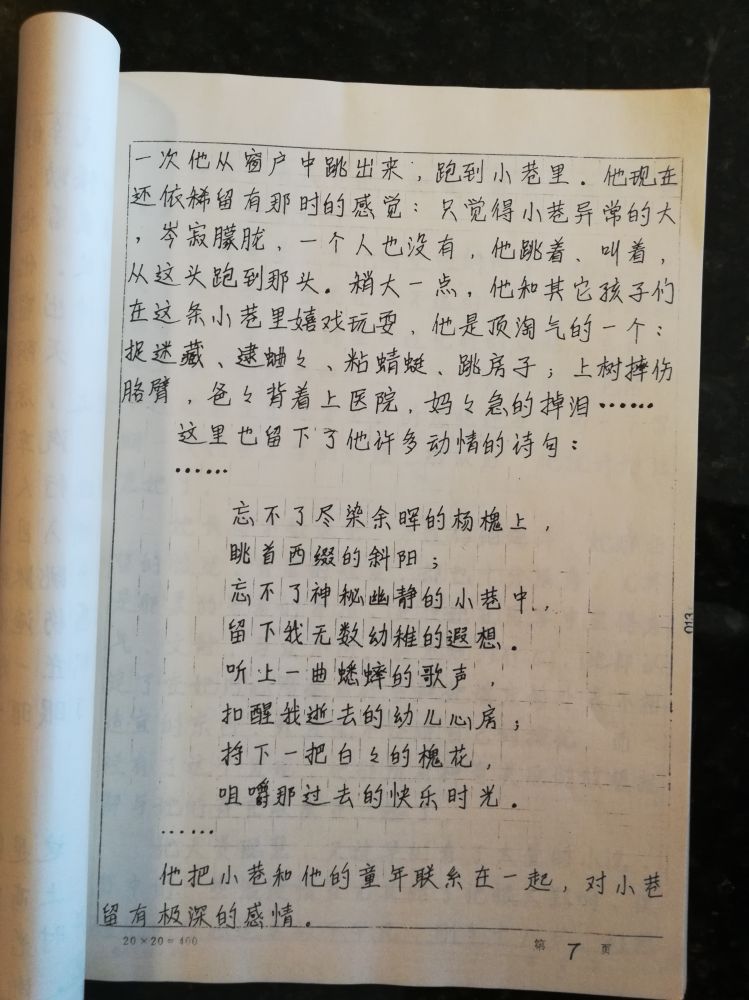 一次他从窗户中跳出来，跑到小巷里．他现在
还依稀留有那时的感觉：只觉得小巷异常的大
，岑寂朦胧，一个人也没有，他跳着、叫着，
从这头跑到那头。稍大一点，他和其它孩子们
在这条小巷里嬉戏玩耍，他是顶淘气的一个：
捉迷藏、逮蛐々、粘蜻蜓、跳房子；上树摔伤
胳臂，爸々背着上医院，妈々急的掉泪……
这里也留下了他许多动情的诗句：
……
忘不了尽染余晖的杨槐上，
眺首西缀的斜阳；
忘不了神秘幽静的小巷中，
留下我无数幼稚的遐想．
听上一曲蟋蟀的歌声，
扣醒我逝去的幼儿心房；
捋下一把白々的槐花，
咀嚼那过去的快乐时光．
……
他把小巷和他的童年联系在一起，对小巷
留有极深的感情。
013
20×20=400
第 7 页